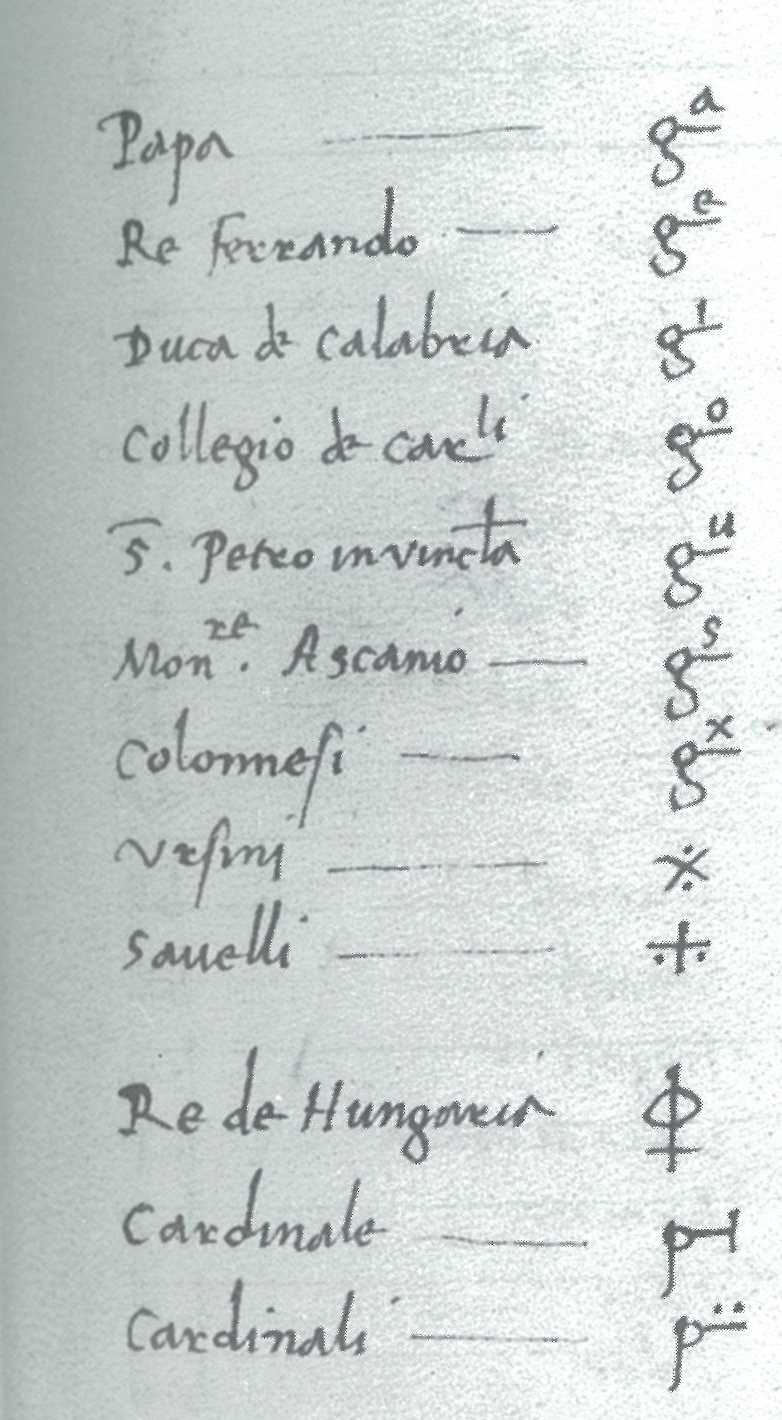 Papa — gᵃ
Re Ferrando — gᵉ
Duca de Calabria gⁱ
Collegio de Carˡⁱ gᵒ
S. Petro in vincta gᵘ
Monʳᵉ. Ascanio — gˢ
Colonnesi — gˣ
Ursini —
Savelli —
Re de Hungaria
Cardinale — p
Cardinali — p̈